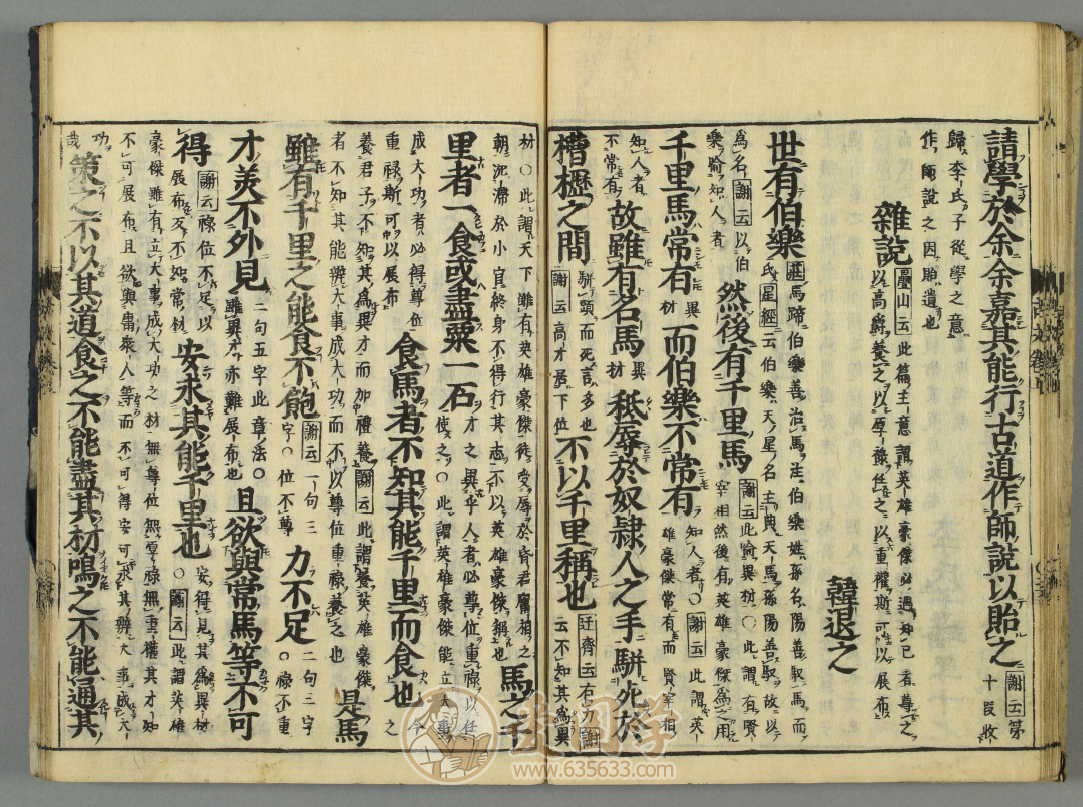 請學於余余嘉其能行古道作師説以貽之 謝云第十段收
歸李氏子從學之意
作師説之因貽遺也
雜説 疊山云此篇主意謂英雄豪傑必遇知己者尊之以高爵養之以厚祿任之以重權斯可以展布
韓退之
世有伯樂 馬蹄伯樂善治馬注伯樂姓孫名陽善馭馬而
氏星經云伯樂天星名主典天馬孫陽善馭故以
爲名謝云以伯樂喻知人者 然後有千里馬 謝云此喻異材○此謂有賢宰相然後有英雄豪傑爲之用
千里馬常有 異材 而伯樂不常有 知人者○謝云此謂英雄豪傑常有而賢宰相
知人者不常有 故雖有名馬 異材 秪辱於奴隷人之手駢死於
槽櫪之間 駢頭而死言多也謝云高才屈下位 不以千里稱也 迂齊云有力謝云不知其爲異
材○此謂天下雖有英雄豪傑徒受辱於昏君庸相之
朝沉滯於小官終身不得行其志不以英雄豪傑稱也 馬之千
里者一食或盡粟一石 才之異乎人者必尊位重祿以任使之○此謂英雄豪傑能立大事
成大功者必得尊位重祿斯可以展布 食馬者不知其能千里而食也 今之
養君子不知其爲異才而加禮養謝云此謂養英雄豪傑
者不知其能辨大事成大功而不以尊位重祿養之也 是馬
雖有千里之能食不飽 謝云一句三字○位不尊 力不足 二句三字○祿不重
才美不外見 二句五字此章法○雖異才亦難展布也 且欲與常馬等不可
得 謝云祿位不足以展布反不如常材 安求其能千里也 安得見其爲異材○謝云此謂英雄
豪傑雖有立大事成大功之材無尊位無厚祿無重權其才知
不可展布且欲與庸衆人等而不可得安可求其辨大事成大
功哉 策之不以其道食之不能盡其材鳴之不能通其
麦同学
www.635633.com